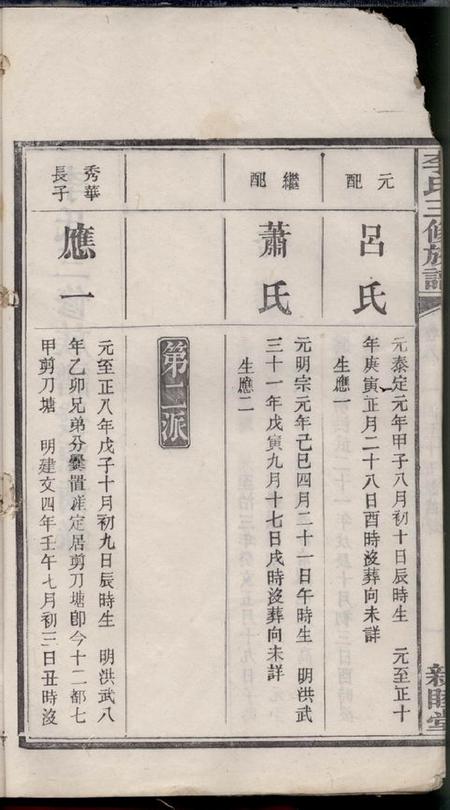 李氏三修族譜
新睦堂
元配
呂氏
元泰定元年甲子八月初十日辰時生　元至正十
年庚寅正月二十八日酉時沒葬向未詳
生應一
繼配
蕭氏
元明宗元年己巳四月二十一日午時生　明洪武
三十一年戊寅九月十七日戌時沒葬向未詳
生應二
第二派
秀華
長子
應一
元至正八年戊子十月初九日辰時生　明洪武八
年乙卯兄弟分爨置產定居剪刀塘卽今十二都七
甲剪刀塘　明建文四年壬午七月初三日丑時沒